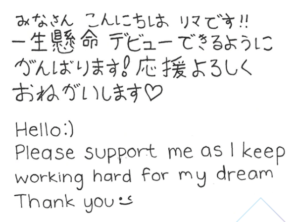 みなさん こんにちは リマです!!
一生懸命 デビューできるように
がんばります!応援よろしく
おねがいします♡
Hello:)
Please support me as I keep
working hard for my dream
Thank you:)